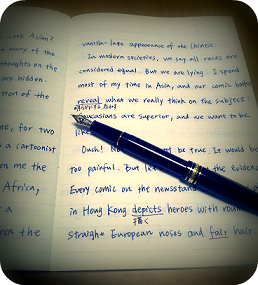 Look Asian?
many of the
thoughts on the
are hidden.
tion of the
me, for two
a cartoonist
en me the
Africa,
r a
rch the
vanilla-late appearance of the Chinese.
In modern societies, we say all races are
considered equal. But we are lying. I spend
most of my time in Asia, and our comic books
reveal what we really think on the subject:
Caucasians are superior, and we want to be
like
Ouch! be true. It would be
too painful. But the evidence
Every comic on the newsstand
in Hong Kong depicts heroes with round
straight European noses and fair hair.